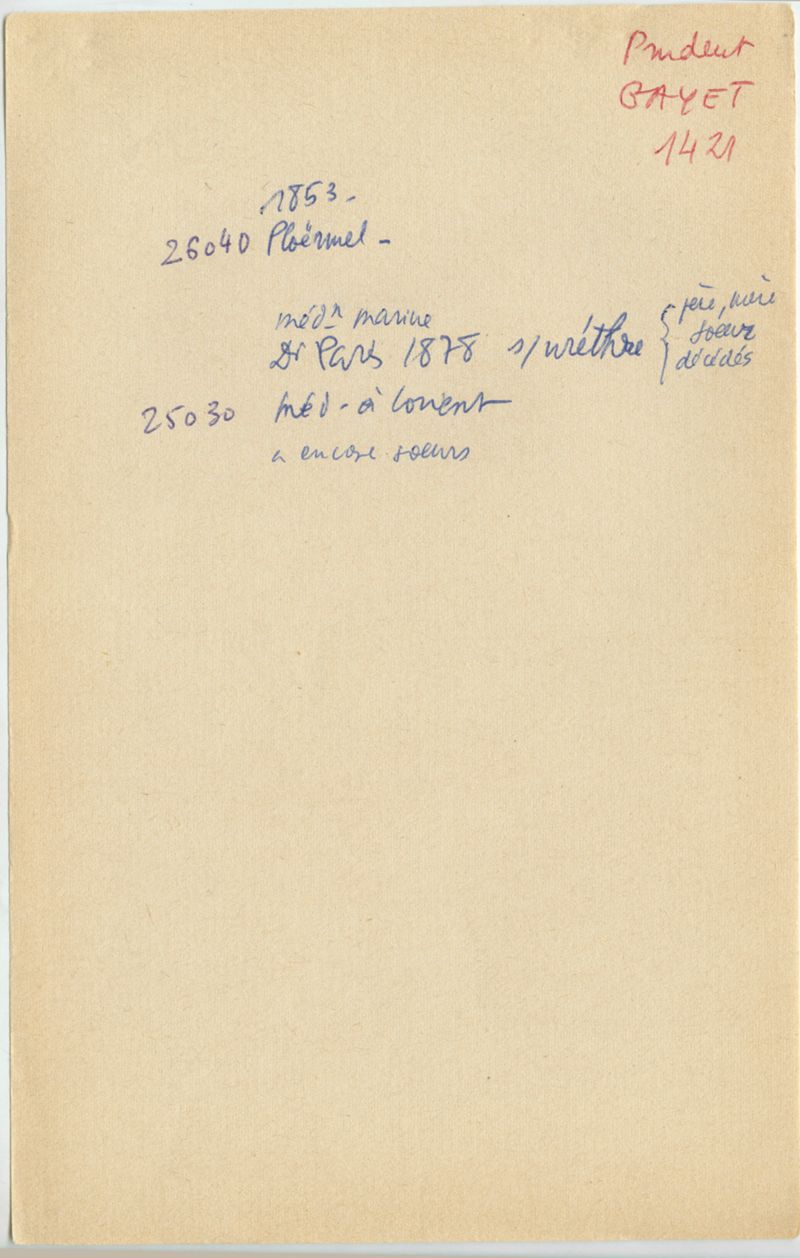 Prudent
GAYET
1421
1853 -
26040 Ploërmel -
méd-n marine
Dr Paris 1878 s/uréthre { père, mère
soeur
décédés
25030 méd - à Lorient
a encore soeurs